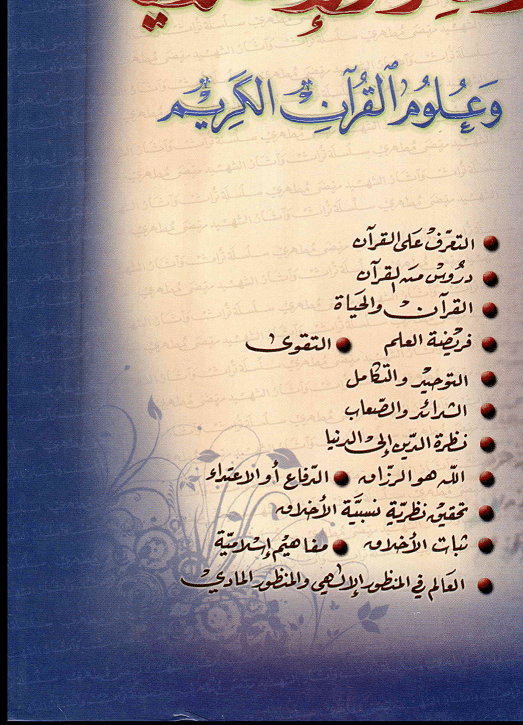 وَعُلُومُ ٱلْقُرْآنِ الكَرِيمِ
التعرّف على القرآن
دروس من القرآن
القرآن والحياة
فريضة العلم • التقوى
التوحيد والتكامل
الشدائد والصّعاب
نظرة الدّين إلى الدنيا
اللّه هو الرزاق • الدّفاع أو الاعتداء
تحقيق نظريّة نسبيّة الأخلاق
ثبات الأخلاق • مفاهيم إسلاميّة
العالم في المنظور الإلهي والمنظور المادي